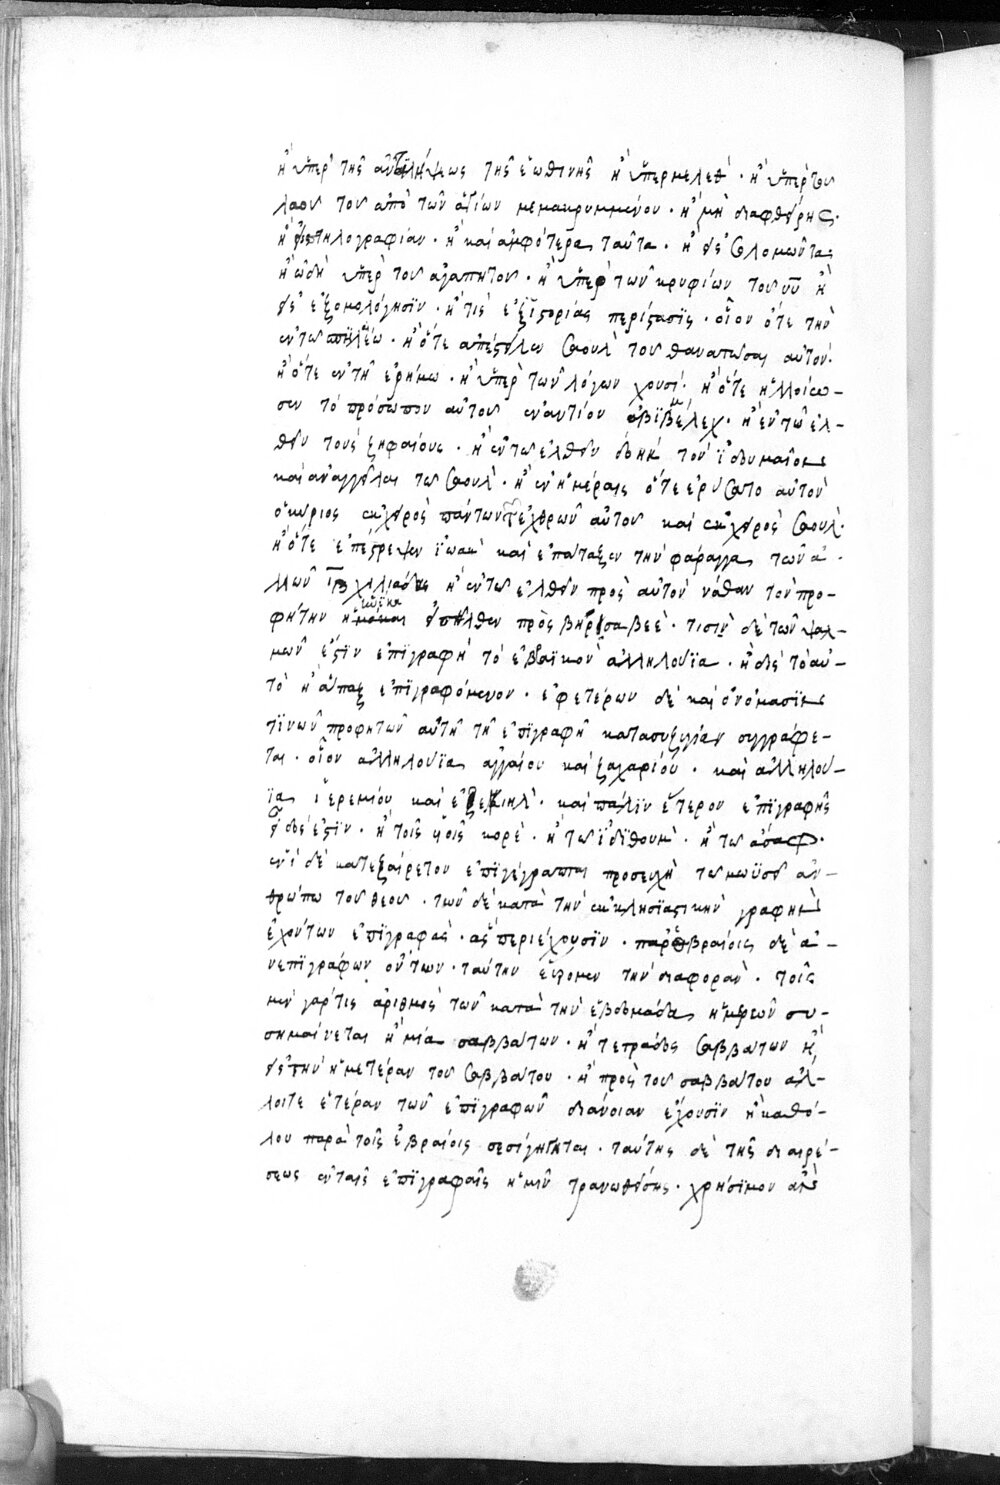 ἢ ὑπὲρ τῆς ἀντιλήψεως τῆς ἑωθινῆς ἢ ὑπὲρ μελεθ· ἢ ὑπὲρ του
λαου του ἀπὸ τῶν ἁγίων μεμακρυμμένου· ἢ μὴ διαφθείρης·
ἢ εἰς στηλογραφίαν· ἢ καὶ ἀμφότερα ταῦτα· ἢ εἰς σολομῶντα
ἢ ὠδὴ ὑπὲρ του ἀγαπητου· ἢ ὑπὲρ τῶν κρυφίων του υυ ἢ
εἰς ἐξομολόγησϊν· ἢ τὶς ἐξ ἱστορίας περίστασϊς· οἷον ὅτε τὴν
ἐν τω σπηλαίω· ἢ ὅτε ἀπέστειλεν σαουλ του θανατῶσαι αὐτον·
ἢ ὅτε ἐν τῇ ἐρήμω· ἢ ὑπὲρ τῶν λόγων χουσί· ἢ ὅτε ἠλλοίω-
σεν τὸ πρόσωπον αὐτου ἐναντίον ἀβϊμέλεχ· ἢ ἐν τῶ ἐλ-
θεῖν τοὺς ζηφαίους· ἢ ἐν τω ἐλθεῖν δωὴκ τὸν ϊδουμαῖον
καὶ ἀναγγεῖλαι τω σαουλ· ἢ ἐν ἡμέραις ὅτε ἐρύσατο αὐτὸν
ὁ κύριος ἐκ χειρὸς πάντων τῶν ἐχθρῶν αὐτου καὶ ἐκ χειρὸς σαουλ·
ἢ ὅτε ἐπέστρεψεν ϊωαβ καὶ ἐπάταξεν τὴν φάραγγα τῶν ἁ-
λλῶν ιβ χιλιάδας ἢ ἐν τω ἐλθεῖν πρὸς αὐτὸν νάθαν τὸν προ-
φήτην ἡνίκα εἰσῆλθεν πρὸς βηρσαβεὲ· τισὶν δὲ τῶν ψαλ-
μῶν ἐστϊν ἐπϊγραφὴ τὸ ἑβραϊκὸν ἀλληλούϊα· ἢ δὶς τὸ αὐ-
τὸ ἢ ἅπαξ ἐπϊγραφόμενον· ἐφ ἑτέρων δὲ καὶ ὀνόμασϊν
τϊνῶν προφητῶν αὐτῇ τῇ ἐπϊγραφῇ κατὰ συζυγίαν συγγράφε-
ται· οἷον ἀλληλούϊα ἀγγαίου καὶ ζαχαρίου· καὶ ἀλληλού-
ϊα ιερεμίου καὶ ἐζεκιὴλ· καὶ πάλϊν ἕτερον ἐπϊγραφῆς
εἶδός ἐστϊν· ἢ τοῖς υἱοῖς κορὲ· ἢ τω ϊδϊθοὺμ· ἢ τω ἀσάφ·
ἑνὶ δὲ κατεξαίρετον ἐπϊγέγραπται προσευχὴ τω μωϋσεῖ ἀν-
θρώπω του θεου· τῶν δὲ κατὰ τὴν ἐκκλησϊαστικὴν γραφὴν
ἐχόντων ἐπϊγραφὰς· ἃς περιέχουσϊν· παρ ἑβραίοις δὲ ἀ-
νεπϊγράφων ὄντων· ταύτην εὕρομεν τὴν διαφορὰν· τοῖς
μὲν γάρ τις ἀριθμὸς τῶν κατὰ τὴν ἑβδομάδα ἡμερῶν συ-
σημαίνεται ἢ μία σαββάτων· ἢ τετράδος σαββάτων ἢ
εἰς τὴν ἡμετέραν του σαββάτου· ἢ πρὸς του σαββάτου ἀλ-
λοιτε ἑτέραν τῶν ἐπϊγραφῶν διάνοιαν ἔχουσϊν ἢ καθό-
λου παρὰ τοῖς ἑβραίοις σεσίγηται· ταύτης δὲ τῆς διαιρέ-
σεως ἐν ταῖς ἐπϊγραφαῖς ἡμῖν τρανωθείσης· χρήσϊμον